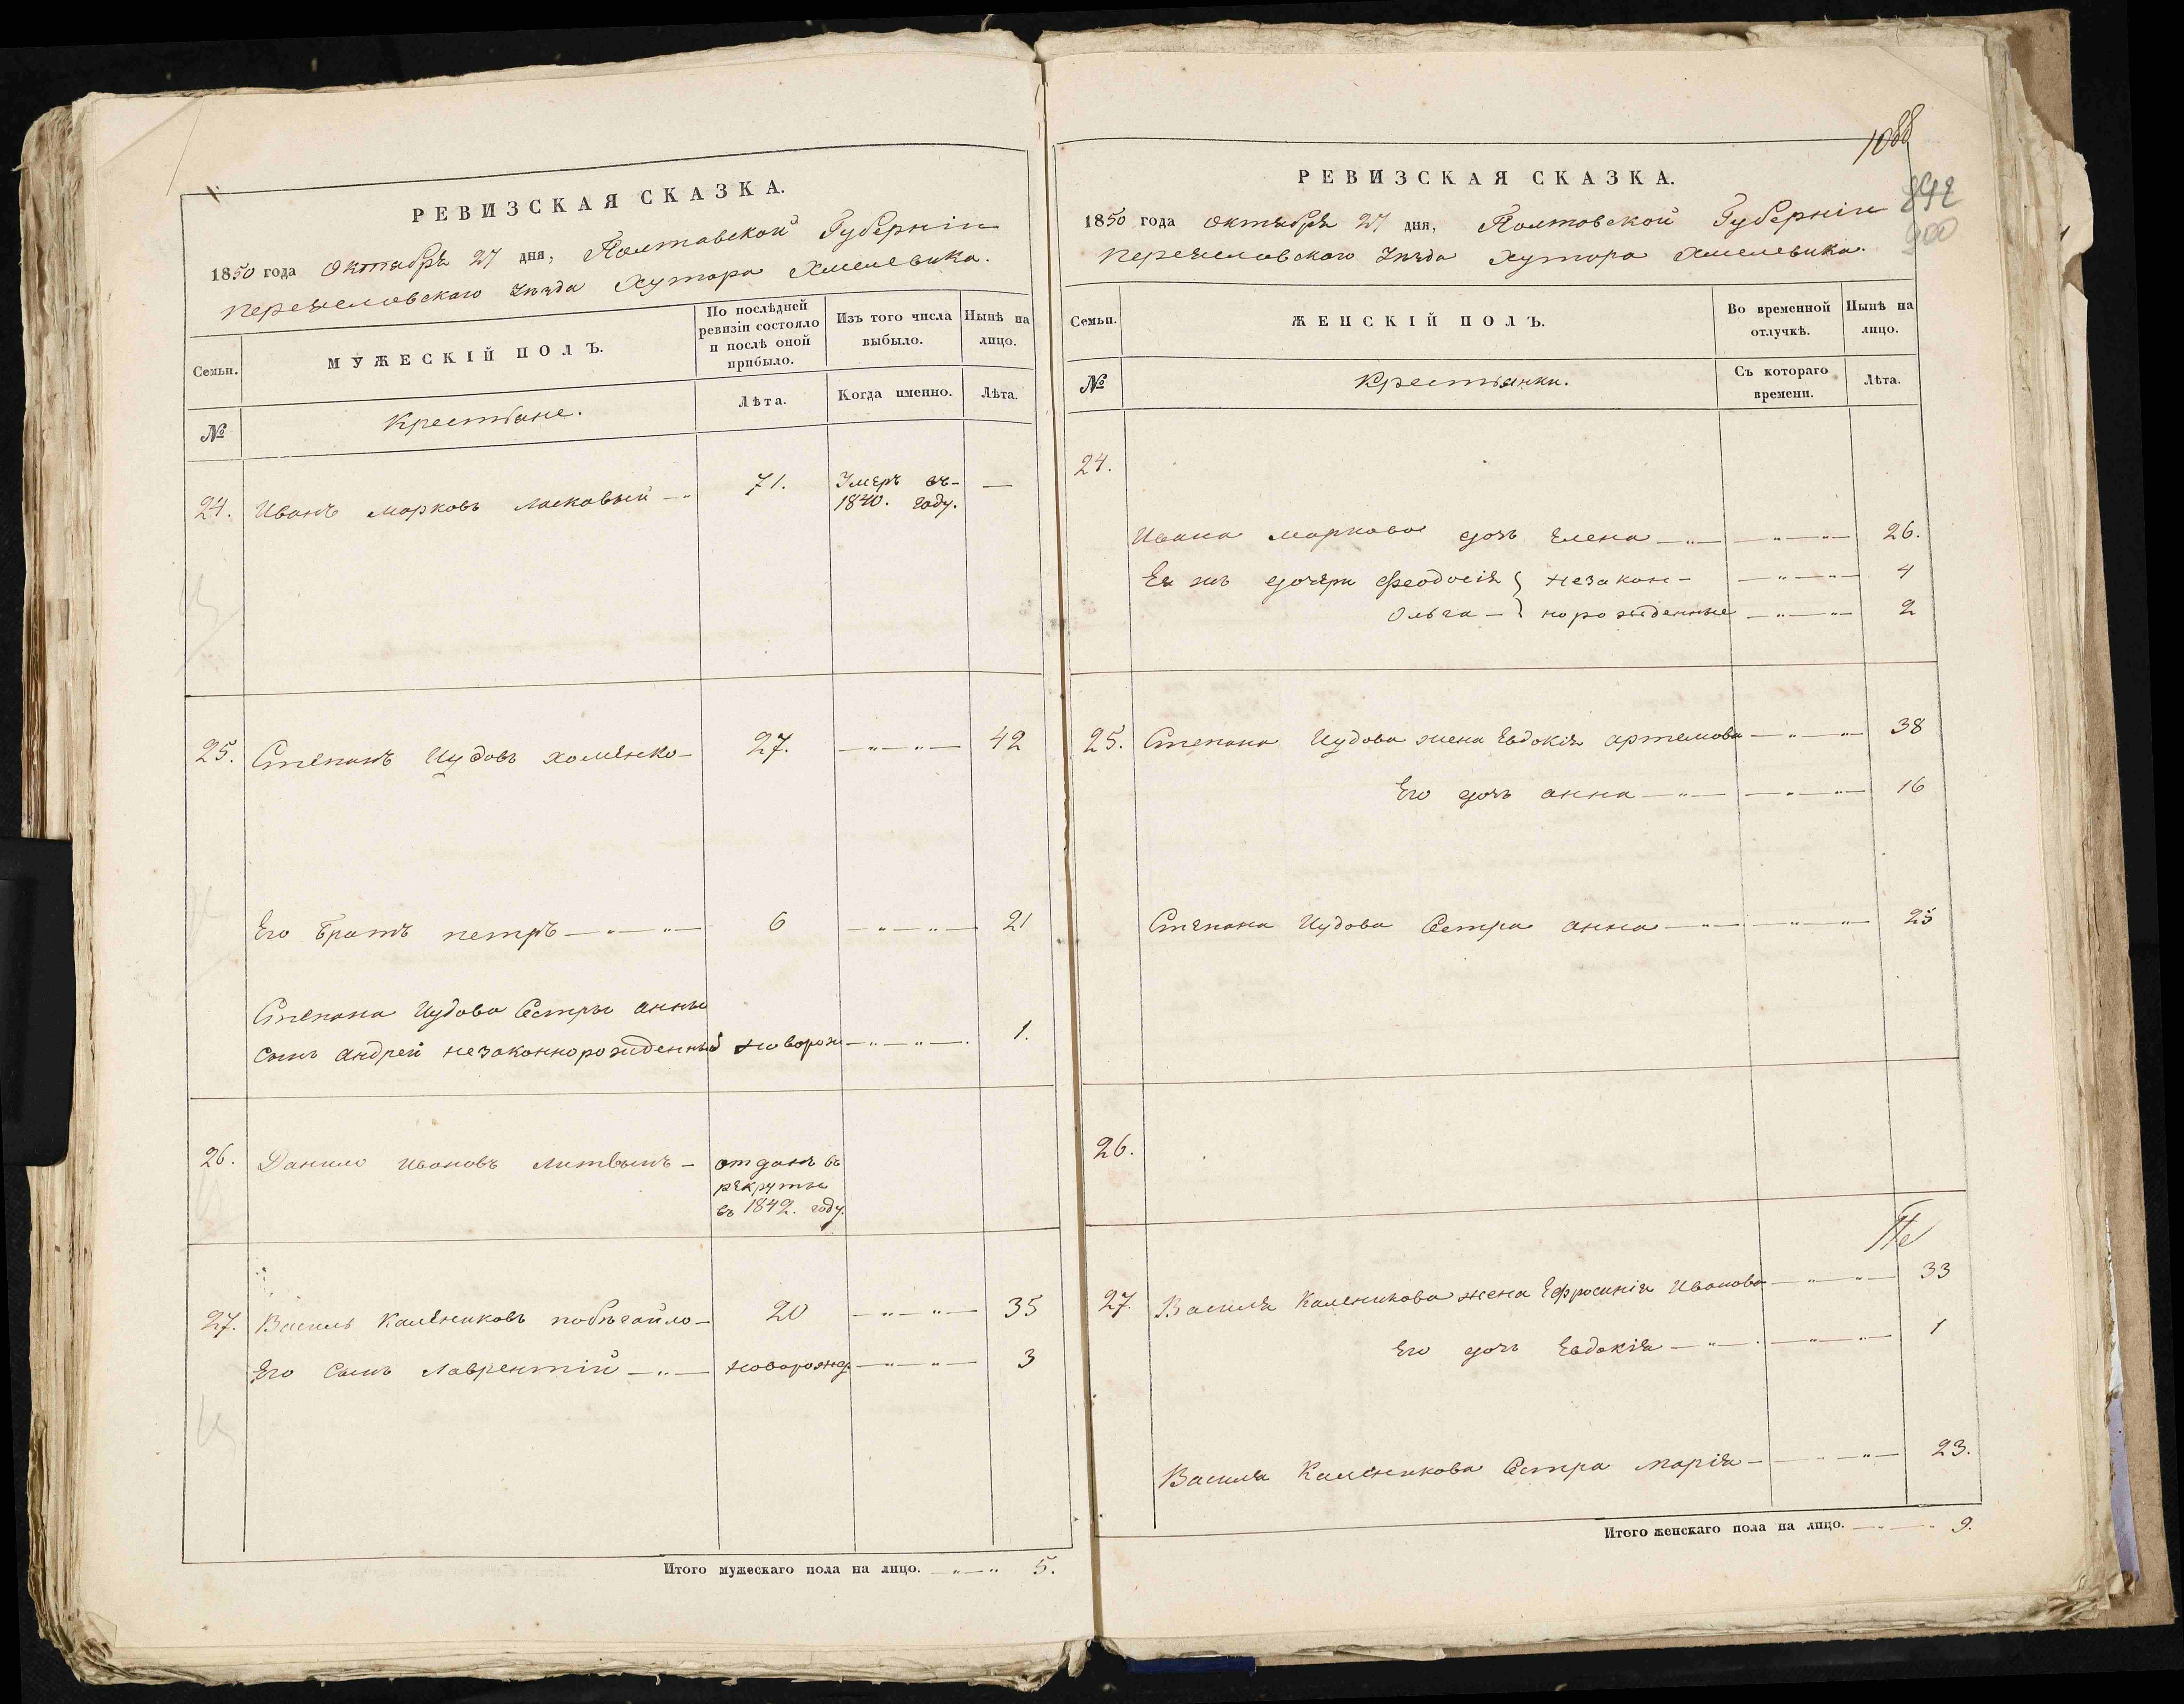 РЕВИЗСКАЯ СКАЗКА.
1850 года Октября 27 дня, Полтавской Губерніи
Переяславскаго Уѣзда Хутора Хмелевика.
Семьи.
МУЖЕСКІЙ ПОЛЪ.
По послѣдней ревизіи состояло и послѣ оной прибыло.
Изъ того числа выбыло.
Нынѣ на лицо.
№
Крестьяне.
Лѣта.
Когда именно.
Лѣта.
24. Иванъ Марковъ Ласкавый — 71. Умеръ въ 1840. году. —
25. Степанъ Иудовъ Хоменко — 27. —„—„— 42
Его Братъ Петръ —„—„— 6 —„—„— 21
Степана Иудова Сестры Анны
сынъ Андрей незаконнорожденный новорож —„—„—. 1.
26. Данило Ивановъ Литвинъ — отданъ въ
рекруты
въ 1842. году.
27. Василь Калениковъ Побѣгайло — 20 —„—„— 35
Его Сынъ Лаврентій —„— новорожд. —„—„— 3
Итого мужескаго пола на лицо. —„—„ 5.
1088
892
900
РЕВИЗСКАЯ СКАЗКА.
1850 года Октября 27 дня, Полтовской Губерніи
Переяславскаго Уѣзда Хутора Хмелевика.
Семьи.
ЖЕНСКІЙ ПОЛЪ.
Во временной отлучкѣ.
Нынѣ на лицо.
№
Крестьянки.
Съ котораго времени.
Лѣта.
24.
Ивана Маркова дочь Елена —„— —„—„— 26.
Ея жъ дочери Феодосія } незакон- —„—„— 4
Ольга — } норожденные —„—„— 2
25. Степана Иудова жена Евдокія Артемова —„—„— 38
Его дочь Анна —„— —„—„— 16
Степана Иудова Сестра Анна —„— —„—„— 25
26.
27. Василя Каленикова жена Ефросинія Иванова —„—„— 33
Его дочь Евдокія —„—. —„—„— 1
Василя Каленикова Сестра Марія — —„—„— 23.
Итого женскаго пола на лицо. —„—„ 9.